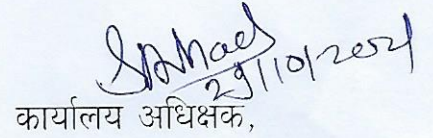 29/10/2021
कार्यालय अधिक्षक,